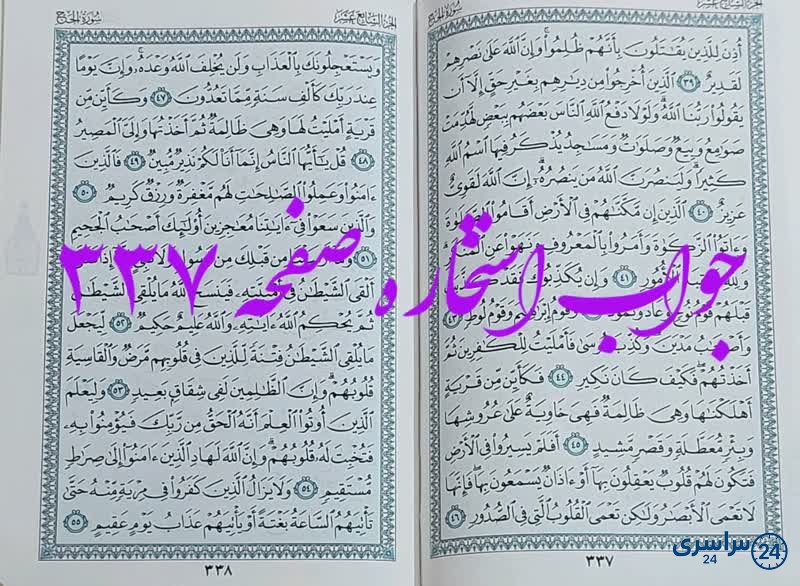 سُورَةُ الحَجِّ
الجُزْءُ السَّابِعَ عَشَرَ
أُذِنَ لِلَّذِينَ يُقَٰتَلُونَ بِأَنَّهُمْ ظُلِمُوا۟ وَإِنَّ ٱللَّهَ عَلَىٰ نَصْرِهِمْ
لَقَدِيرٌ ٣٩ ٱلَّذِينَ أُخْرِجُوا۟ مِن دِيَٰرِهِم بِغَيْرِ حَقٍّ إِلَّآ أَن
يَقُولُوا۟ رَبُّنَا ٱللَّهُ وَلَوْلَا دَفْعُ ٱللَّهِ ٱلنَّاسَ بَعْضَهُم بِبَعْضٍ لَّهُدِّمَتْ
صَوَٰمِعُ وَبِيَعٌ وَصَلَوَٰتٌ وَمَسَٰجِدُ يُذْكَرُ فِيهَا ٱسْمُ ٱللَّهِ
كَثِيرًا وَلَيَنصُرَنَّ ٱللَّهُ مَن يَنصُرُهُۥٓ إِنَّ ٱللَّهَ لَقَوِىٌّ
عَزِيزٌ ٤٠ ٱلَّذِينَ إِن مَّكَّنَّٰهُمْ فِى ٱلْأَرْضِ أَقَامُوا۟
وَءَاتَوُا۟ وَأَمَرُوا۟ بِٱلْمَعْرُوفِ وَنَهَوْا۟ عَنِ
٤١ وَإِن يُكَذِّبُوكَ فَقَدْ
قَبْلَهُمْ قَوْمُ وَعَادٌ وَقَوْمُ وَقَوْمُ لُوطٍ
مَدْيَنَ فَأَمْلَيْتُ لِلْكَٰفِرِينَ ثُمَّ
أَخَذْتُهُمْ فَكَيْفَ كَانَ نَكِيرِ ٤٤ فَكَأَيِّن مِّن قَرْيَةٍ
أَهْلَكْنَٰهَا وَهِىَ ظَالِمَةٌ فَهِىَ خَاوِيَةٌ عَلَىٰ عُرُوشِهَا
وَبِئْرٍ مُّعَطَّلَةٍ وَقَصْرٍ مَّشِيدٍ ٤٥ أَفَلَمْ يَسِيرُوا۟ فِى ٱلْأَرْضِ
فَتَكُونَ لَهُمْ قُلُوبٌ يَعْقِلُونَ بِهَآ أَوْ ءَاذَانٌ يَسْمَعُونَ بِهَا فَإِنَّهَا
لَا تَعْمَى ٱلْأَبْصَٰرُ وَلَٰكِن تَعْمَى ٱلْقُلُوبُ ٱلَّتِى فِى ٱلصُّدُورِ ٤٦
٣٣٧
سُورَةُ الحَجِّ
الجُزْءُ السَّابِعَ عَشَرَ
وَيَسْتَعْجِلُونَكَ بِٱلْعَذَابِ وَلَن يُخْلِفَ ٱللَّهُ وَعْدَهُۥ وَإِنَّ يَوْمًا
عِندَ رَبِّكَ كَأَلْفِ سَنَةٍ مِّمَّا تَعُدُّونَ ٤٧ وَكَأَيِّن مِّن
قَرْيَةٍ أَمْلَيْتُ لَهَا وَهِىَ ظَالِمَةٌ ثُمَّ أَخَذْتُهَا وَإِلَىَّ ٱلْمَصِيرُ
٤٨ قُلْ يَٰٓأَيُّهَا ٱلنَّاسُ إِنَّمَآ أَنَا۠ لَكُمْ نَذِيرٌ مُّبِينٌ ٤٩ فَٱلَّذِينَ
ءَامَنُوا۟ وَعَمِلُوا۟ ٱلصَّٰلِحَٰتِ لَهُم مَّغْفِرَةٌ وَرِزْقٌ كَرِيمٌ ٥٠
وَٱلَّذِينَ سَعَوْا۟ فِىٓ ءَايَٰتِنَا مُعَٰجِزِينَ أُو۟لَٰٓئِكَ أَصْحَٰبُ ٱلْجَحِيمِ
٥١ مِن قَبْلِكَ مِن
أَلْقَى ٱلشَّيْطَٰنُ فِىٓ فَيَنسَخُ ٱللَّهُ مَا يُلْقِى ٱلشَّيْطَٰنُ
ثُمَّ يُحْكِمُ ٱللَّهُ ءَايَٰتِهِۦ وَٱللَّهُ عَلِيمٌ حَكِيمٌ ٥٢ لِّيَجْعَلَ
مَا يُلْقِى ٱلشَّيْطَٰنُ فِتْنَةً لِّلَّذِينَ فِى قُلُوبِهِم مَّرَضٌ وَٱلْقَاسِيَةِ
قُلُوبُهُمْ وَإِنَّ ٱلظَّٰلِمِينَ لَفِى شِقَاقٍۭ بَعِيدٍ ٥٣ وَلِيَعْلَمَ
ٱلَّذِينَ أُوتُوا۟ ٱلْعِلْمَ أَنَّهُ ٱلْحَقُّ مِن رَّبِّكَ فَيُؤْمِنُوا۟ بِهِۦ
فَتُخْبِتَ لَهُۥ قُلُوبُهُمْ وَإِنَّ ٱللَّهَ لَهَادِ ٱلَّذِينَ ءَامَنُوٓا۟ إِلَىٰ صِرَٰطٍ
مُّسْتَقِيمٍ ٥٤ وَلَا يَزَالُ ٱلَّذِينَ كَفَرُوا۟ فِى مِرْيَةٍ مِّنْهُ حَتَّىٰ
تَأْتِيَهُمُ ٱلسَّاعَةُ بَغْتَةً أَوْ يَأْتِيَهُمْ عَذَابُ يَوْمٍ عَقِيمٍ ٥٥
٣٣٨
جواب استخاره صفحه ۳۳۷
سراسری 24
24